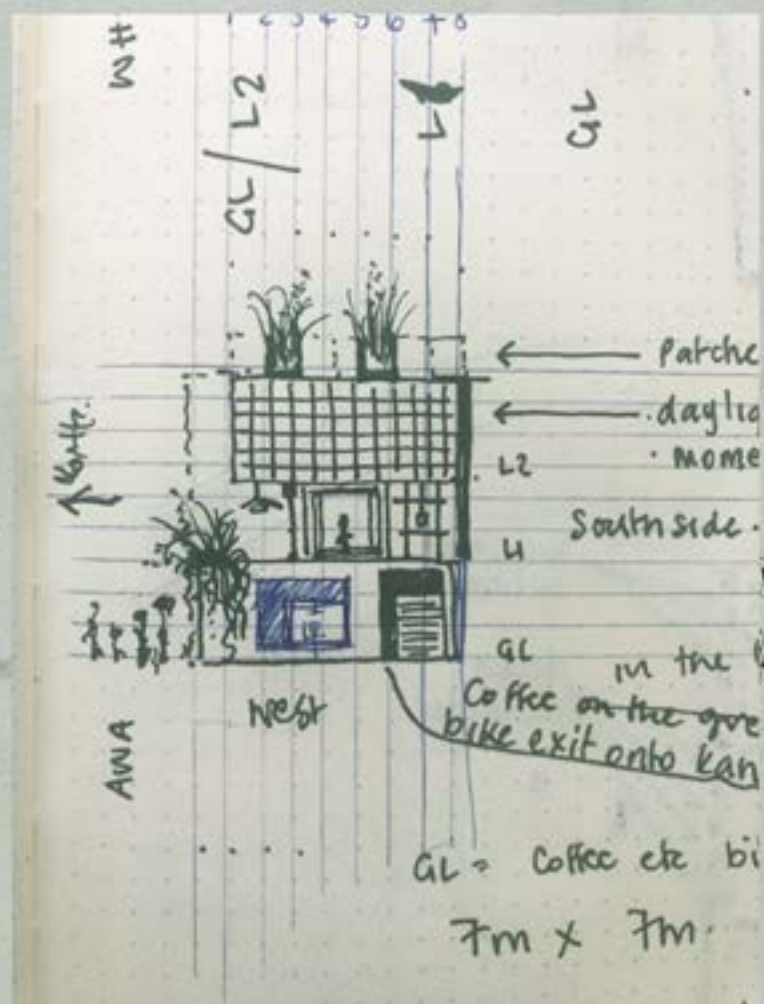 1 2 3 4 5 6 7 8
MH
GL / L2
L
GL
Patche
dayli
L2
mome
South side.
L1
GL
in the
West
Coffee on the gre
bike exit onto Kan
AWA
GL = Coffee etc bi
7m x 7m.